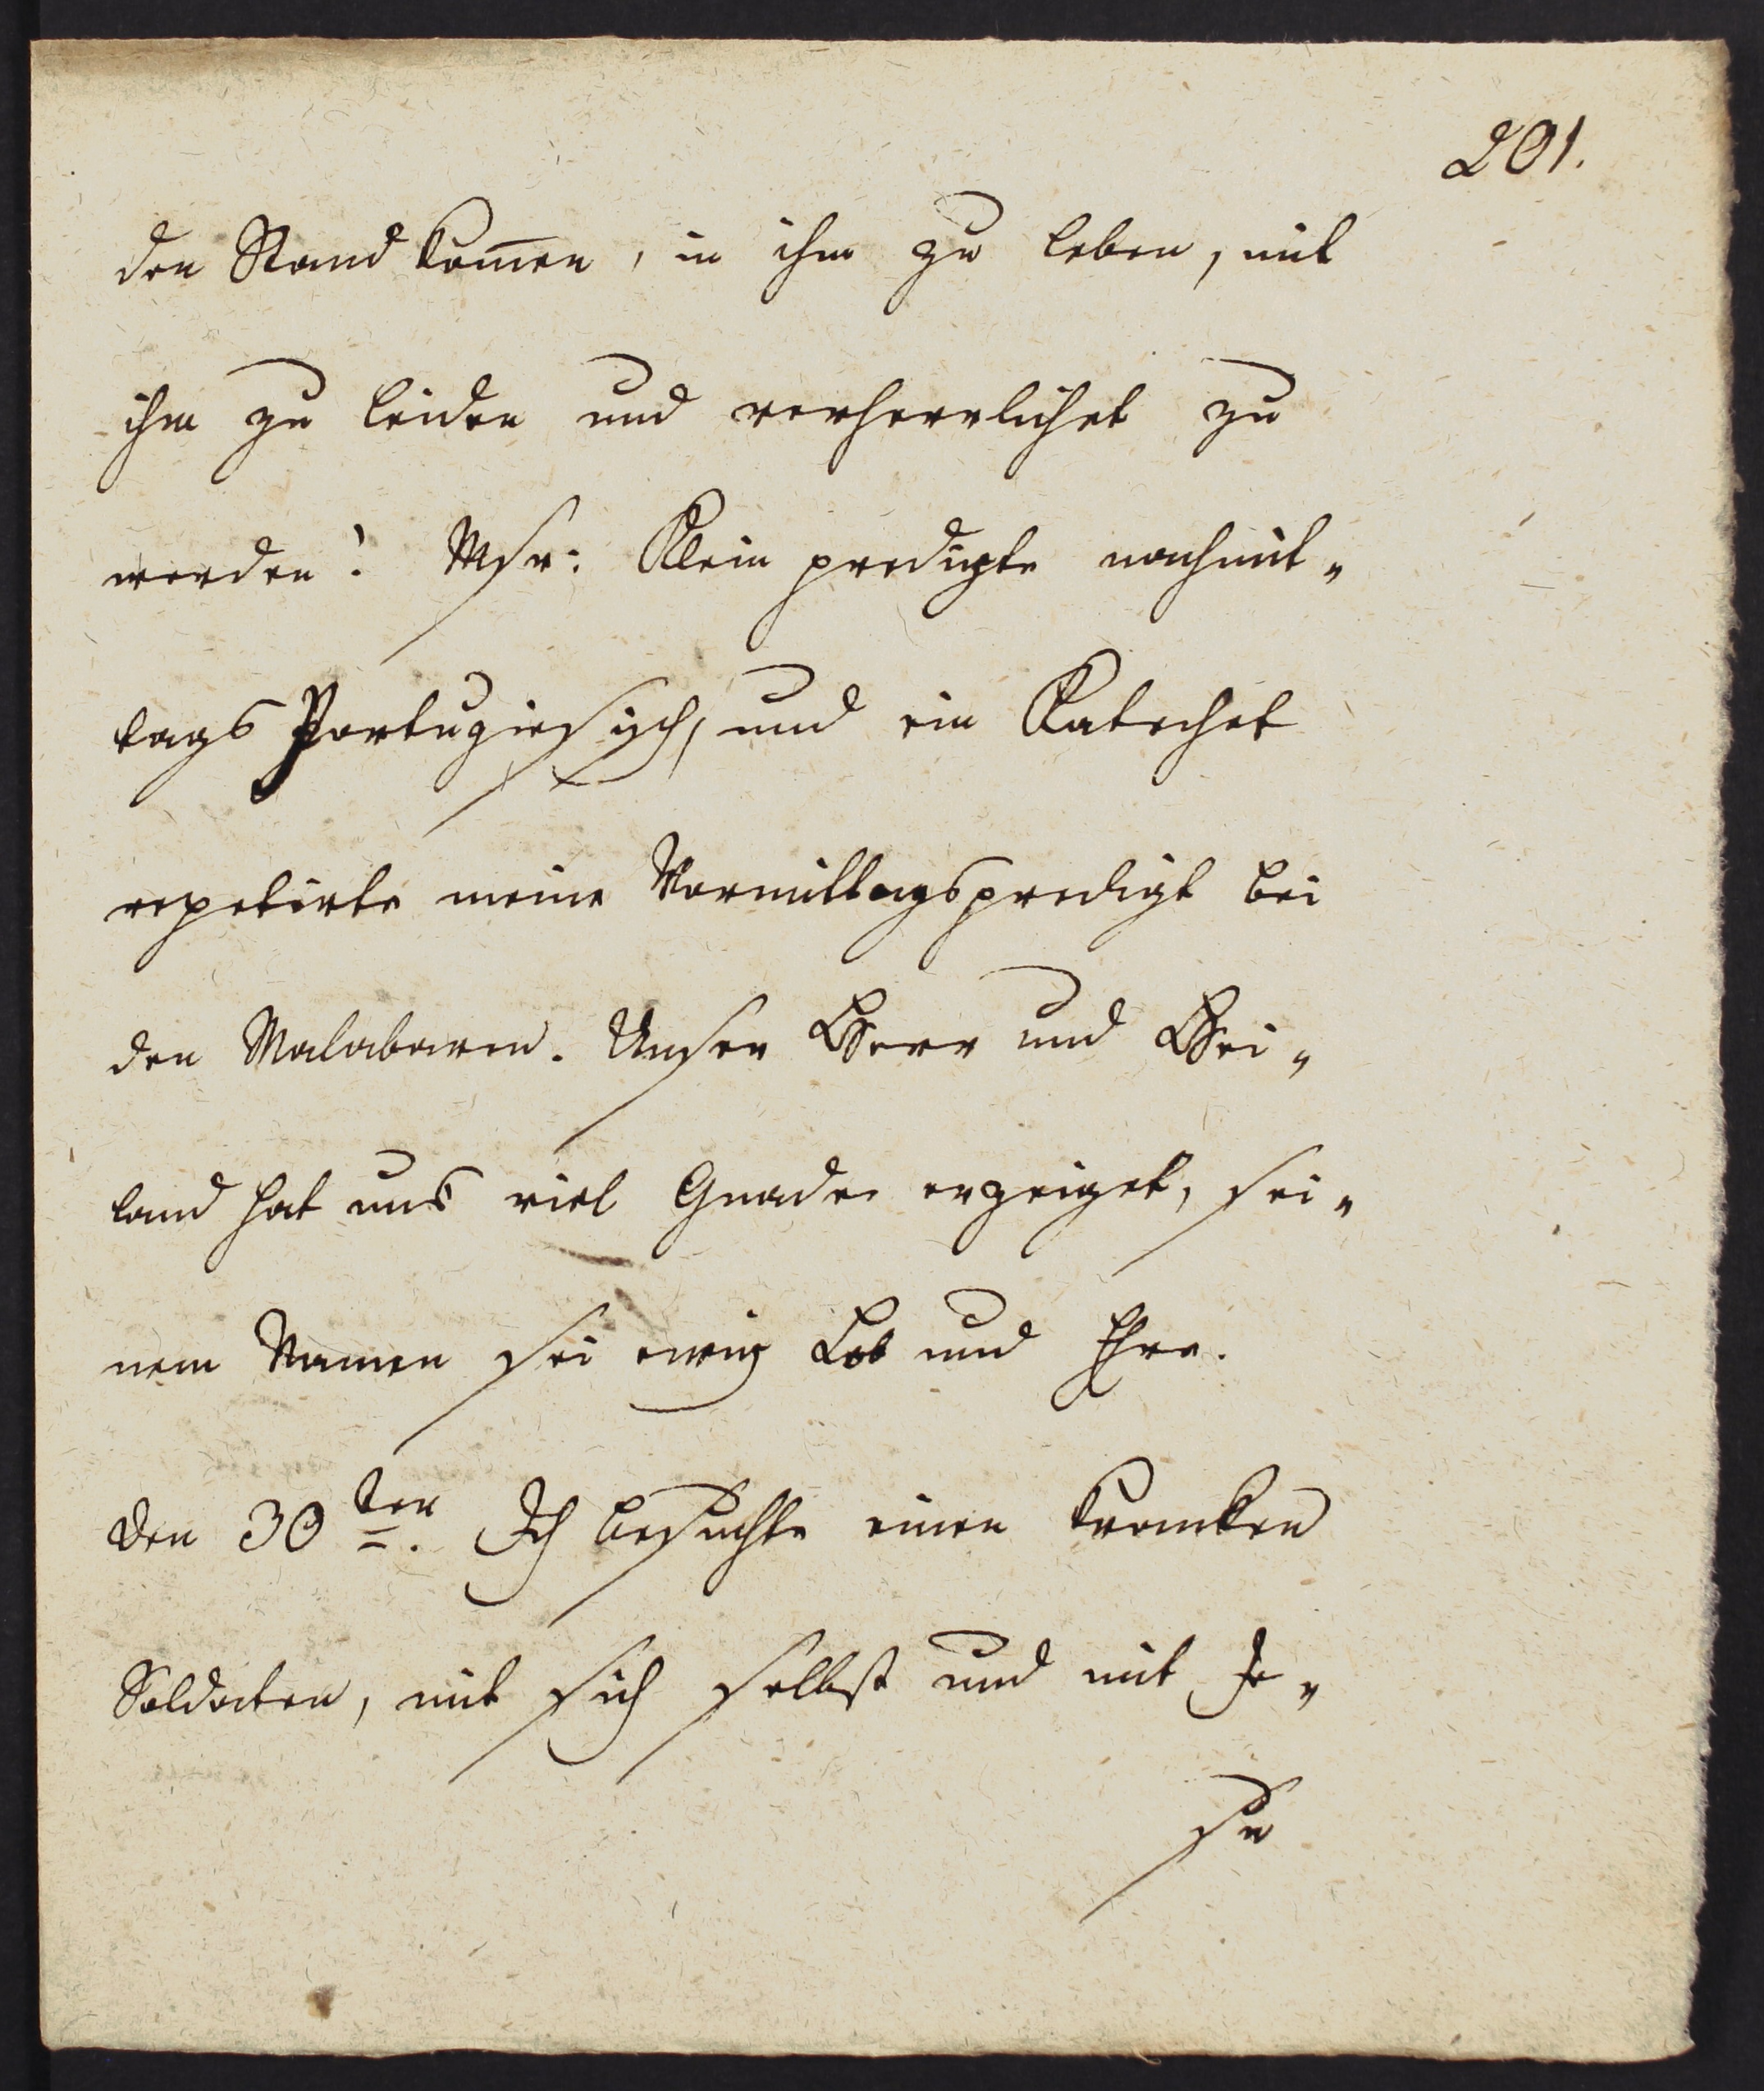 201.
den Stand kom̄en, in ihm zu leben, mit
ihm zu leiden und verherrlichet zu
werden! Msr: Klein predigte nachmit„
tags Portugiesisch, und ein Katechet
repetirte meine Vormittagspredigt bei
den Malabaren. Unser Herr und Hei„
land hat uns viel Gnade erzeiget, sei„
nem Namen sei ewig Lob und Ehre.
Den 30ten. Ich besuchte einen kranken
Soldaten, mit sich selbst und mit Je„
su